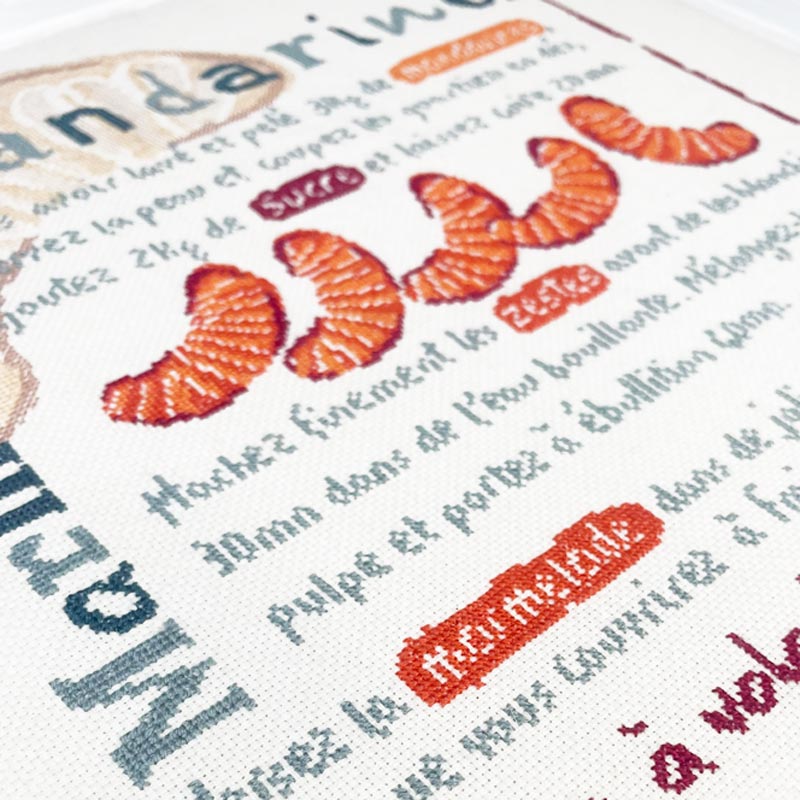 andarine
avoir lavé et pelé 3Kg de Mandarines,
la peau et coupez les quartiers en dés,
joutez 2Kg de Sucre et laissez cuire 20mn
Hachez finement les zestes avant de les blanchi
30mn dans de l'eau bouillante. Mélangez
pulpe et portez à ébullition 60mn.
la marmelade dans de
que vous couvrirez à
à vol
Mar